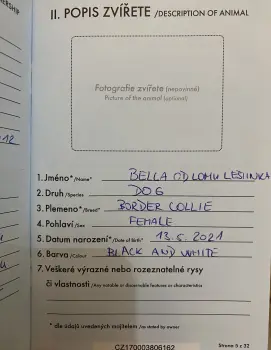 II. POPIS ZVÍŘETE /DESCRIPTION OF ANIMAL
Fotografie zvířete (nepovinné)
Picture of the animal (optional)
1. Jméno* /Name* BELLA OD LOMU LESINKA
2. Druh /Species DOG
3. Plemeno* /Breed* BORDER COLLIE
4. Pohlaví /Sex FEMALE
5. Datum narození* /Date of Birth* 13.5.2021
6. Barva /Colour BLACK AND WHITE
7. Veškeré výrazné nebo rozeznatelné rysy
či vlastnosti /Any notable or discernable features or characteristics
* dle údajů uvedených majitelem /as stated by owner
CZ170003806162
Strana 5 z 32